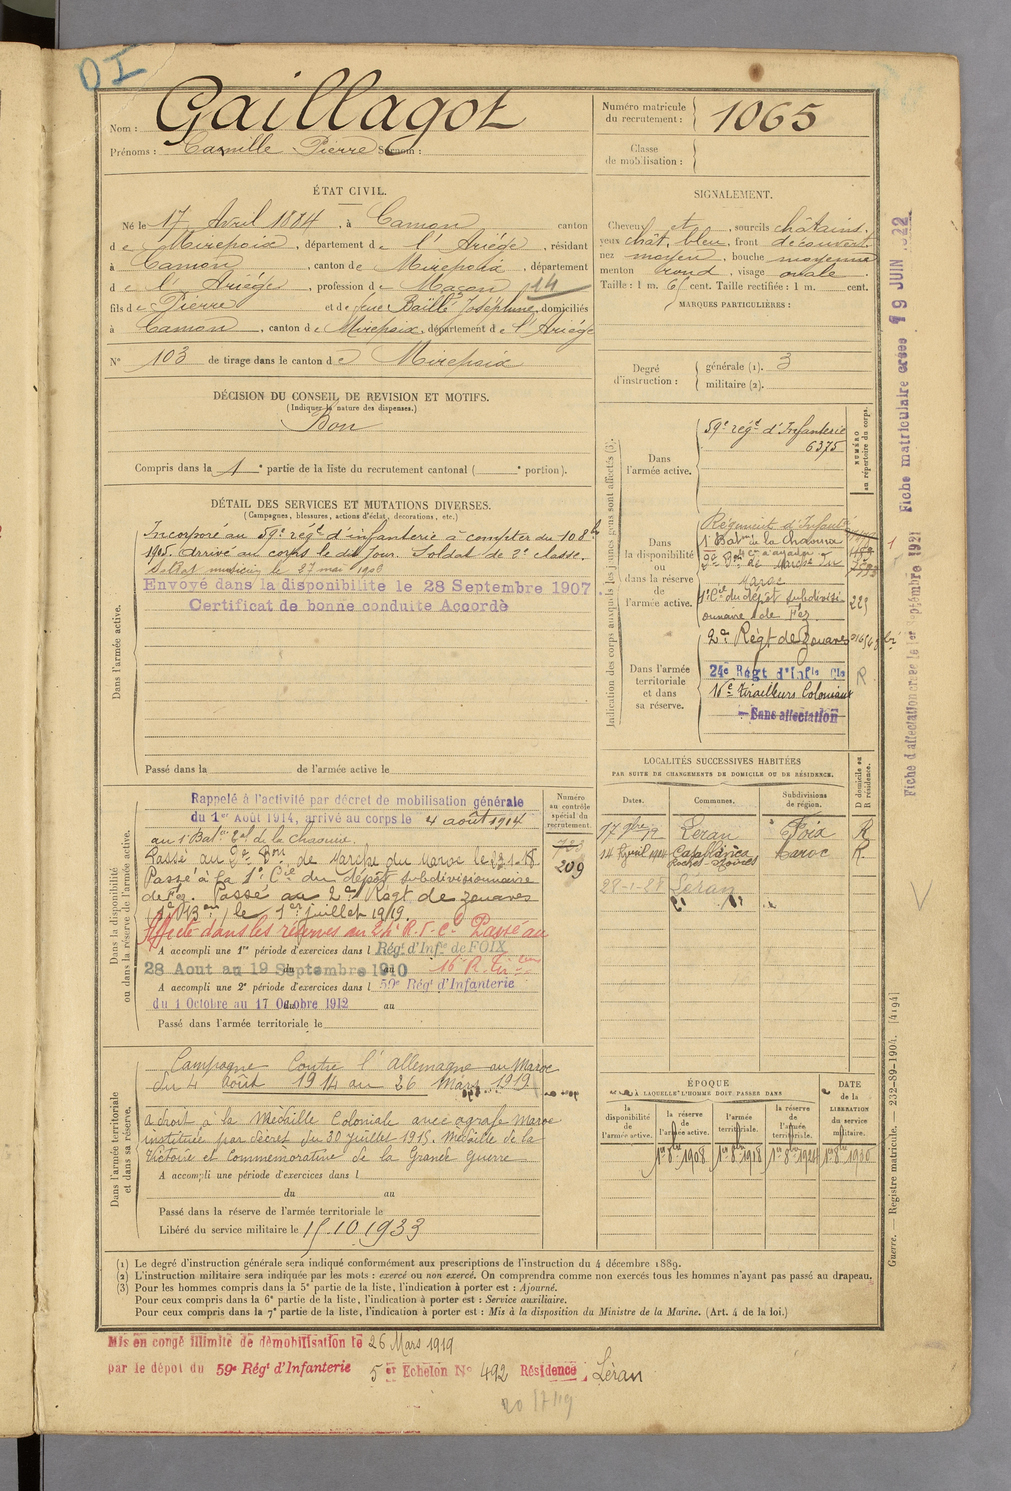 OI
Nom : Gaillagot
Prénoms : Camille Pierre Surnom :
Numéro matricule du recrutement : 1065
Classe de mobilisation :
ÉTAT CIVIL.
Né le 17 Avril 1884, à Camon canton
de Mirepoix, département de l'Ariége, résidant
à Camon, canton de Mirepoix, département
de l'Ariége, profession de Maçon 14
fils de Pierre et de feue Baïllé Joséphine, domiciliés
à Camon, canton de Mirepoix, département de l'Ariége
N° 103 de tirage dans le canton de Mirepoix
SIGNALEMENT.
Cheveux et sourcils châtains,
yeux chât. bleu, front découvert
nez moyen, bouche moyenne
menton rond, visage ovale.
Taille : 1 m. 65 cent. Taille rectifiée : 1 m. cent.
MARQUES PARTICULIÈRES :
Degré d'instruction : générale (1). 3
militaire (2).
DÉCISION DU CONSEIL DE REVISION ET MOTIFS.
(Indiquer la nature des dispenses.)
Bon
Compris dans la 1e partie de la liste du recrutement cantonal ( e portion).
DÉTAIL DES SERVICES ET MUTATIONS DIVERSES.
(Campagnes, blessures, actions d'éclat, décorations, etc.)
Dans l'armée active.
Incorporé au 59e régt d'infanterie à compter du 10 8bre
1905. Arrivé au corps le dit jour. Soldat de 2e classe.
Soldat musicien le 27 mai 1906
Envoyé dans la disponibilité le 28 Septembre 1907.
Certificat de bonne conduite Accordé
Passé dans la de l'armée active le
Indication des corps auxquels les jeunes gens sont affectés (3).
NUMÉRO au répertoire du corps.
Dans l'armée active.
59e régt d'Infanterie
6375
Dans la disponibilité ou dans la réserve de l'armée active.
Régiment d'Infant
1r Batn de la Chaouia
Maroc
1e Cie du dépôt subdivisi
onnaire de Fez
223
2e Régt de Zouaves
Dans l'armée territoriale et dans sa réserve.
24e Régt d'Infie Cle
R
16e Tirailleurs Coloniaux
Sans affectation
Dans la disponibilité ou dans la réserve de l'armée active.
Rappelé à l'activité par décret de mobilisation générale
du 1er Août 1914, arrivé au corps le 4 août 1914
au 1r Batn Cal de la Chaouia
Passé au 2e Bon de Marche du Maroc le 23-1-18
Passé à la 1e Cie du dépôt subdivisionnaire
de Fez. Passé au 2e Régt de Zouaves
le 1er juillet 1919.
Affecté dans les réserves au 24e R.I.C. Passé au
A accompli une 1re période d'exercices dans l Régt d'Infie de FOIX
28 Aout au 19 Septembre 1910 16e R. Tir
A accompli une 2e période d'exercices dans l 59e Régt d'Infanterie
du 1 Octobre au 17 Octobre 1912 au
Passé dans l'armée territoriale le
Numéro au contrôle spécial du recrutement.
723
209
LOCALITÉS SUCCESSIVES HABITÉES
PAR SUITE DE CHANGEMENTS DE DOMICILE OU DE RÉSIDENCE.
Dates. Communes. Subdivisions de région. D domicile ou R résidence.
17 9bre 12 Léran Foix R
14 Avril 1914 Casablanca Maroc R.
Roches-Noires
28-1-28 Léran
Dans l'armée territoriale et dans sa réserve.
Campagne Contre l'Allemagne au Maroc
du 4 Août 1914 au 26 Mars 1919
a droit à la Médaille Coloniale avec agrafe Maroc
instituée par décret du 30 juillet 1915. Médaille de la
Victoire et Commémorative de la Grande Guerre
A accompli une période d'exercices dans l
du au
Passé dans la réserve de l'armée territoriale le
Libéré du service militaire le 15.10.1933
ÉPOQUE
À LAQUELLE L'HOMME DOIT PASSER DANS
la disponibilité de l'armée active. la réserve de l'armée active. l'armée territoriale. la réserve de l'armée territoriale. DATE de la LIBÉRATION du service militaire.
1er 8bre 1908 1er 8bre 1918 1er 8bre 1924 1er 8bre 1930
(1) Le degré d'instruction générale sera indiqué conformément aux prescriptions de l'instruction du 4 décembre 1889.
(2) L'instruction militaire sera indiquée par les mots : exercé ou non exercé. On comprendra comme non exercés tous les hommes n'ayant pas passé au drapeau.
(3) Pour les hommes compris dans la 5e partie de la liste, l'indication à porter est : Ajourné.
Pour ceux compris dans la 6e partie de la liste, l'indication à porter est : Service auxiliaire.
Pour ceux compris dans la 7e partie de la liste, l'indication à porter est : Mis à la disposition du Ministre de la Marine. (Art. 4 de la loi.)
Mis en congé illimité de démobilisation le 26 Mars 1919
par le dépôt du 59e Régt d'Infanterie 5 er Echelon N° 492 Résidence Léran
20/7/19
Fiche matriculaire créée 19 JUIN 1922
Fiche d'affectation créée le 1er Septembre 1921
Guerre. — Registre matricule. — 232-89-1904. [4194]